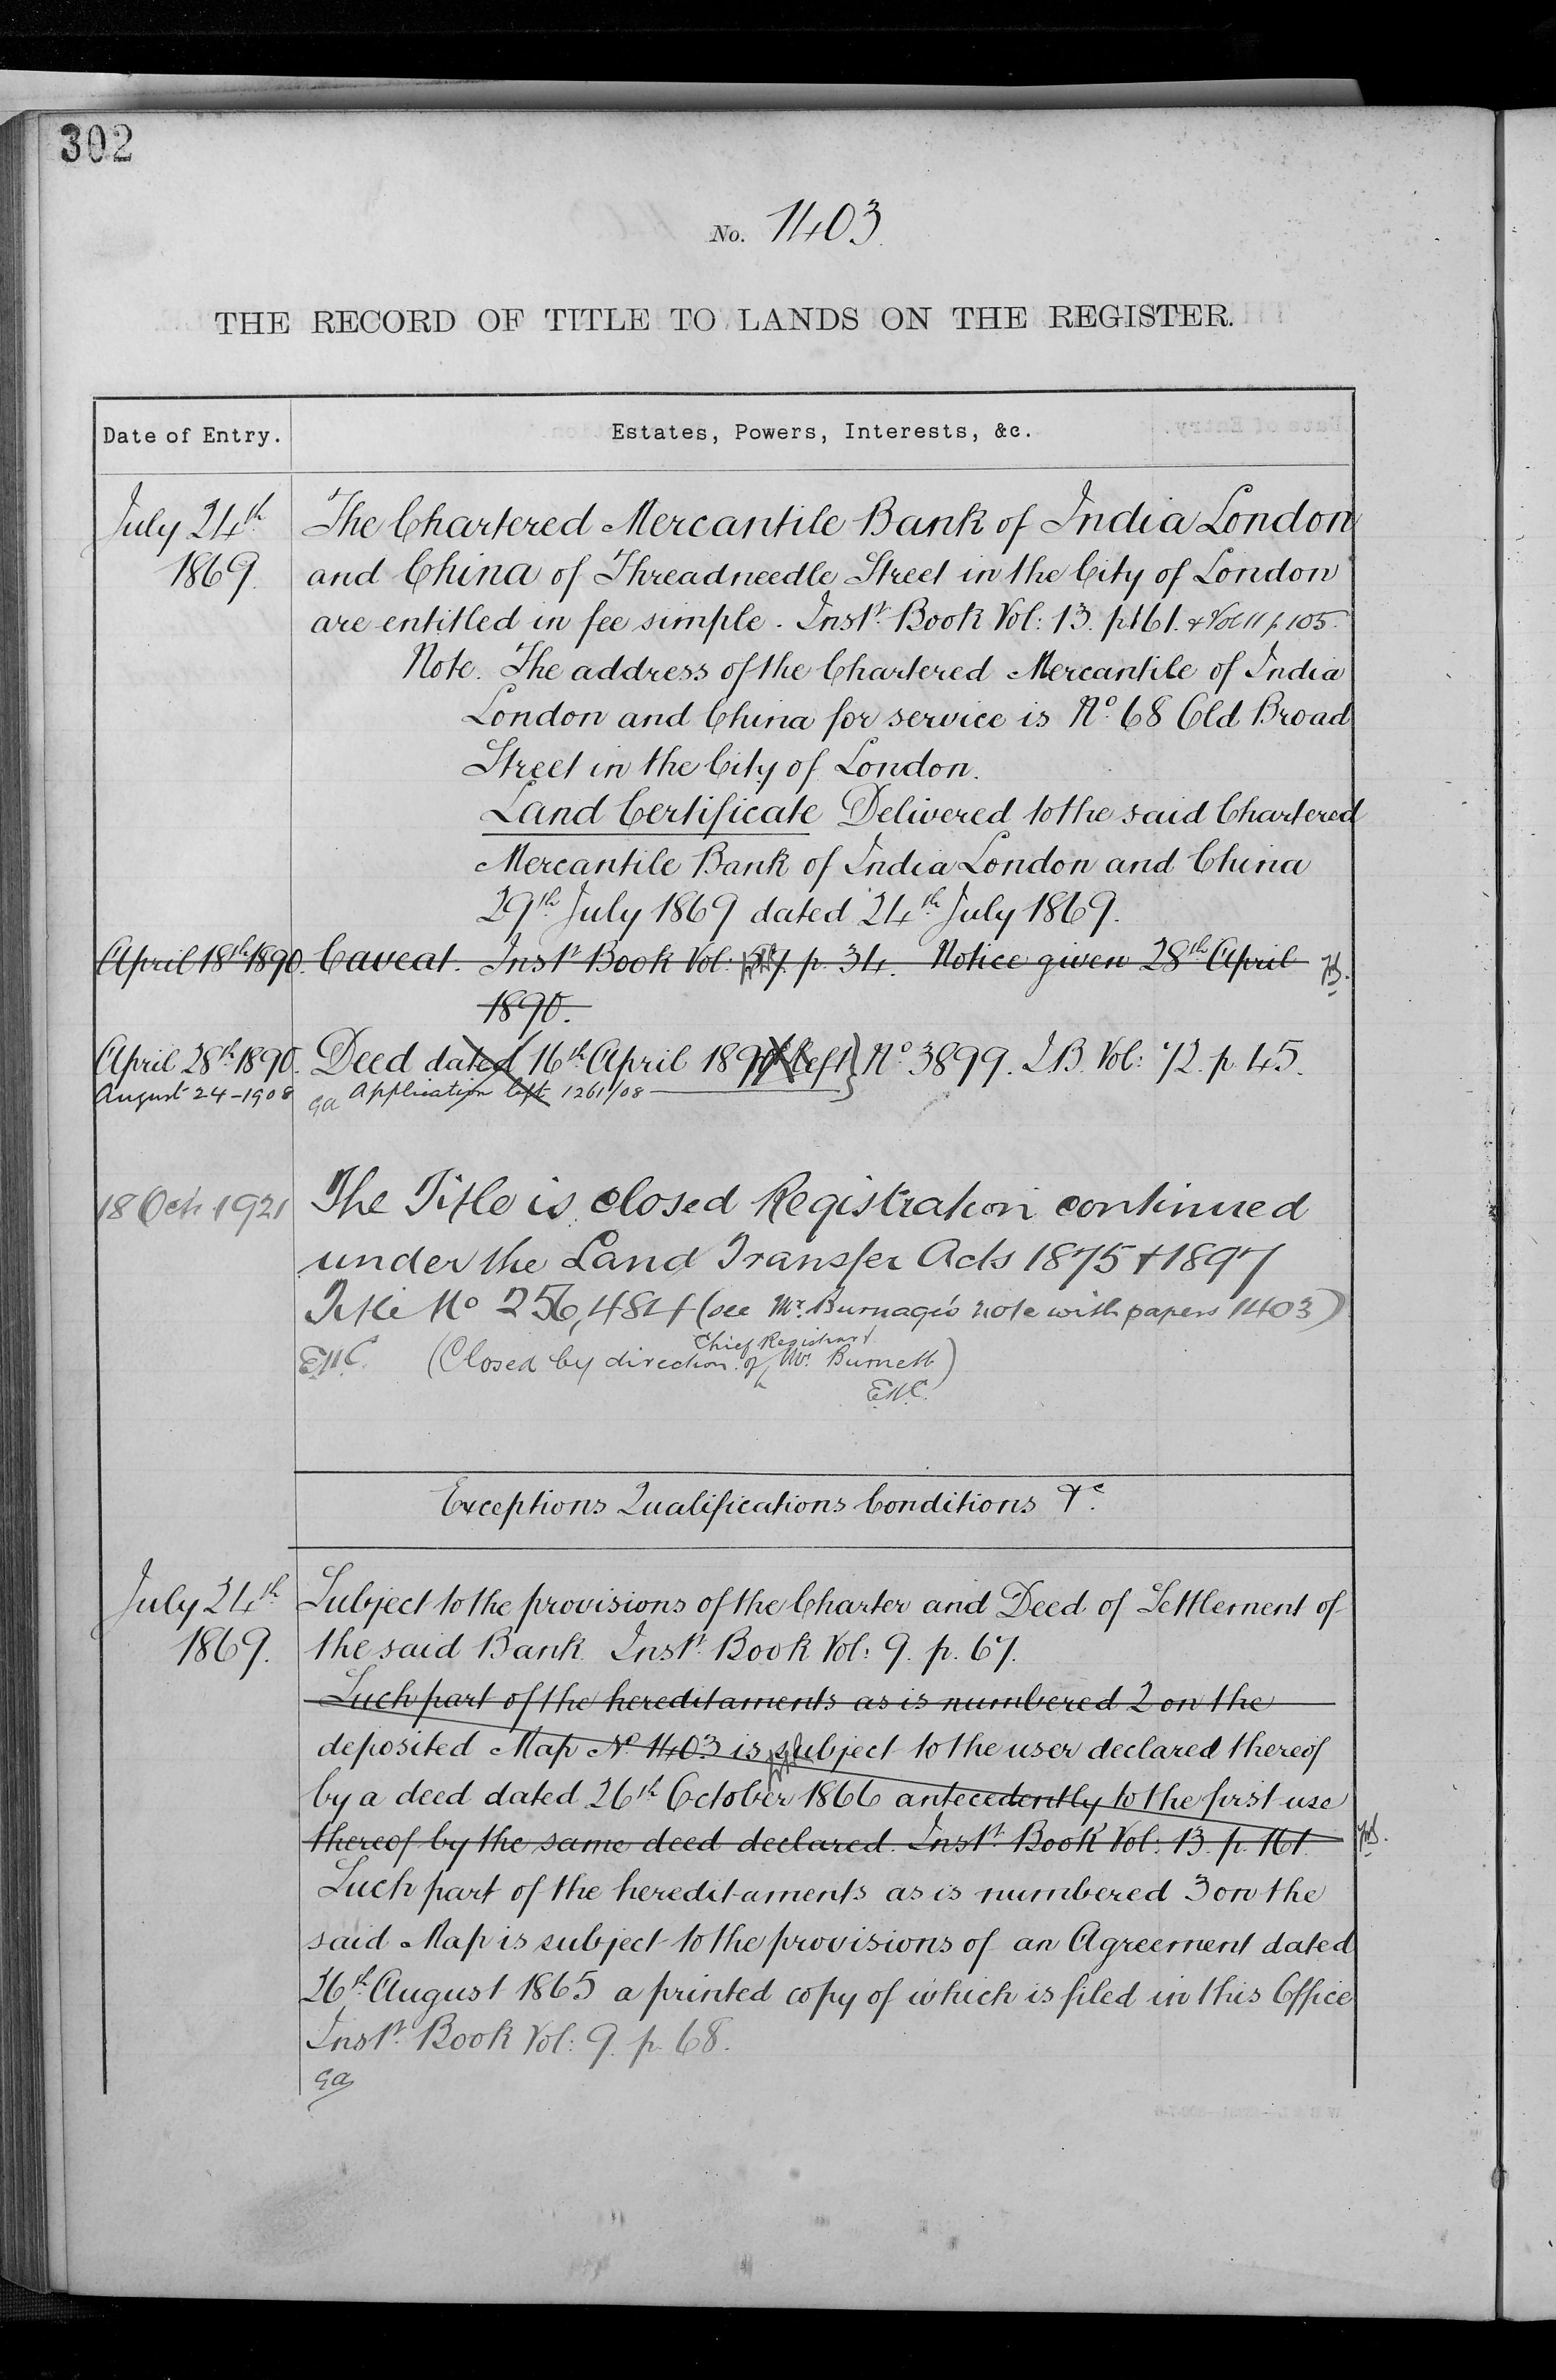 302
No. 1403
THE RECORD OF TITLE TO LANDS ON THE REGISTER.
Date of Entry. Estates, Powers, Interests, &c.
July 24th The Chartered Mercantile Bank of India London
1869. and China of Threadneedle Street in the City of London
are entitled in fee simple. Instt. Book Vol: 13. p161. & Vol 11 p. 105.
Note. The address of the Chartered Mercantile of India
London and China for service is No. 68 Old Broad
Street in the City of London.
Land Certificate Delivered to the said Chartered
Mercantile Bank of India London and China
29th July 1869 dated 24th July 1869.
April 18th 1890. Caveat. Instt. Book Vol: p. 34. Notice given 28th April
1890.
April 28th 1890. Deed dated 16th April 1890 left } No. 3899. I.B. Vol: 72. p. 45.
August 24-1908 GA Application left 1261/08
18 Oct 1921 The Title is closed Registration continued
under the Land Transfer Acts 1875 & 1897
Title No 256,484 (see Mr. Burnage's note with papers 1403)
Chief Registrar
(Closed by direction of Mr. Burnett)
Exceptions Qualifications Conditions &c.
July 24th Subject to the provisions of the Charter and Deed of Settlement of
1869. the said Bank. Instt. Book Vol: 9. p. 67.
Such part of the hereditaments as is numbered 2 on the
deposited Map No. 1403 is subject to the user declared thereof
by a deed dated 26th October 1866 antecedently to the first use
thereof by the same deed declared. Instt. Book Vol: 13. p. 161.
Such part of the hereditaments as is numbered 3 on the
said Map is subject to the provisions of an Agreement dated
26th August 1865 a printed copy of which is filed in this Office
Instt. Book Vol: 9. p. 68.
GA